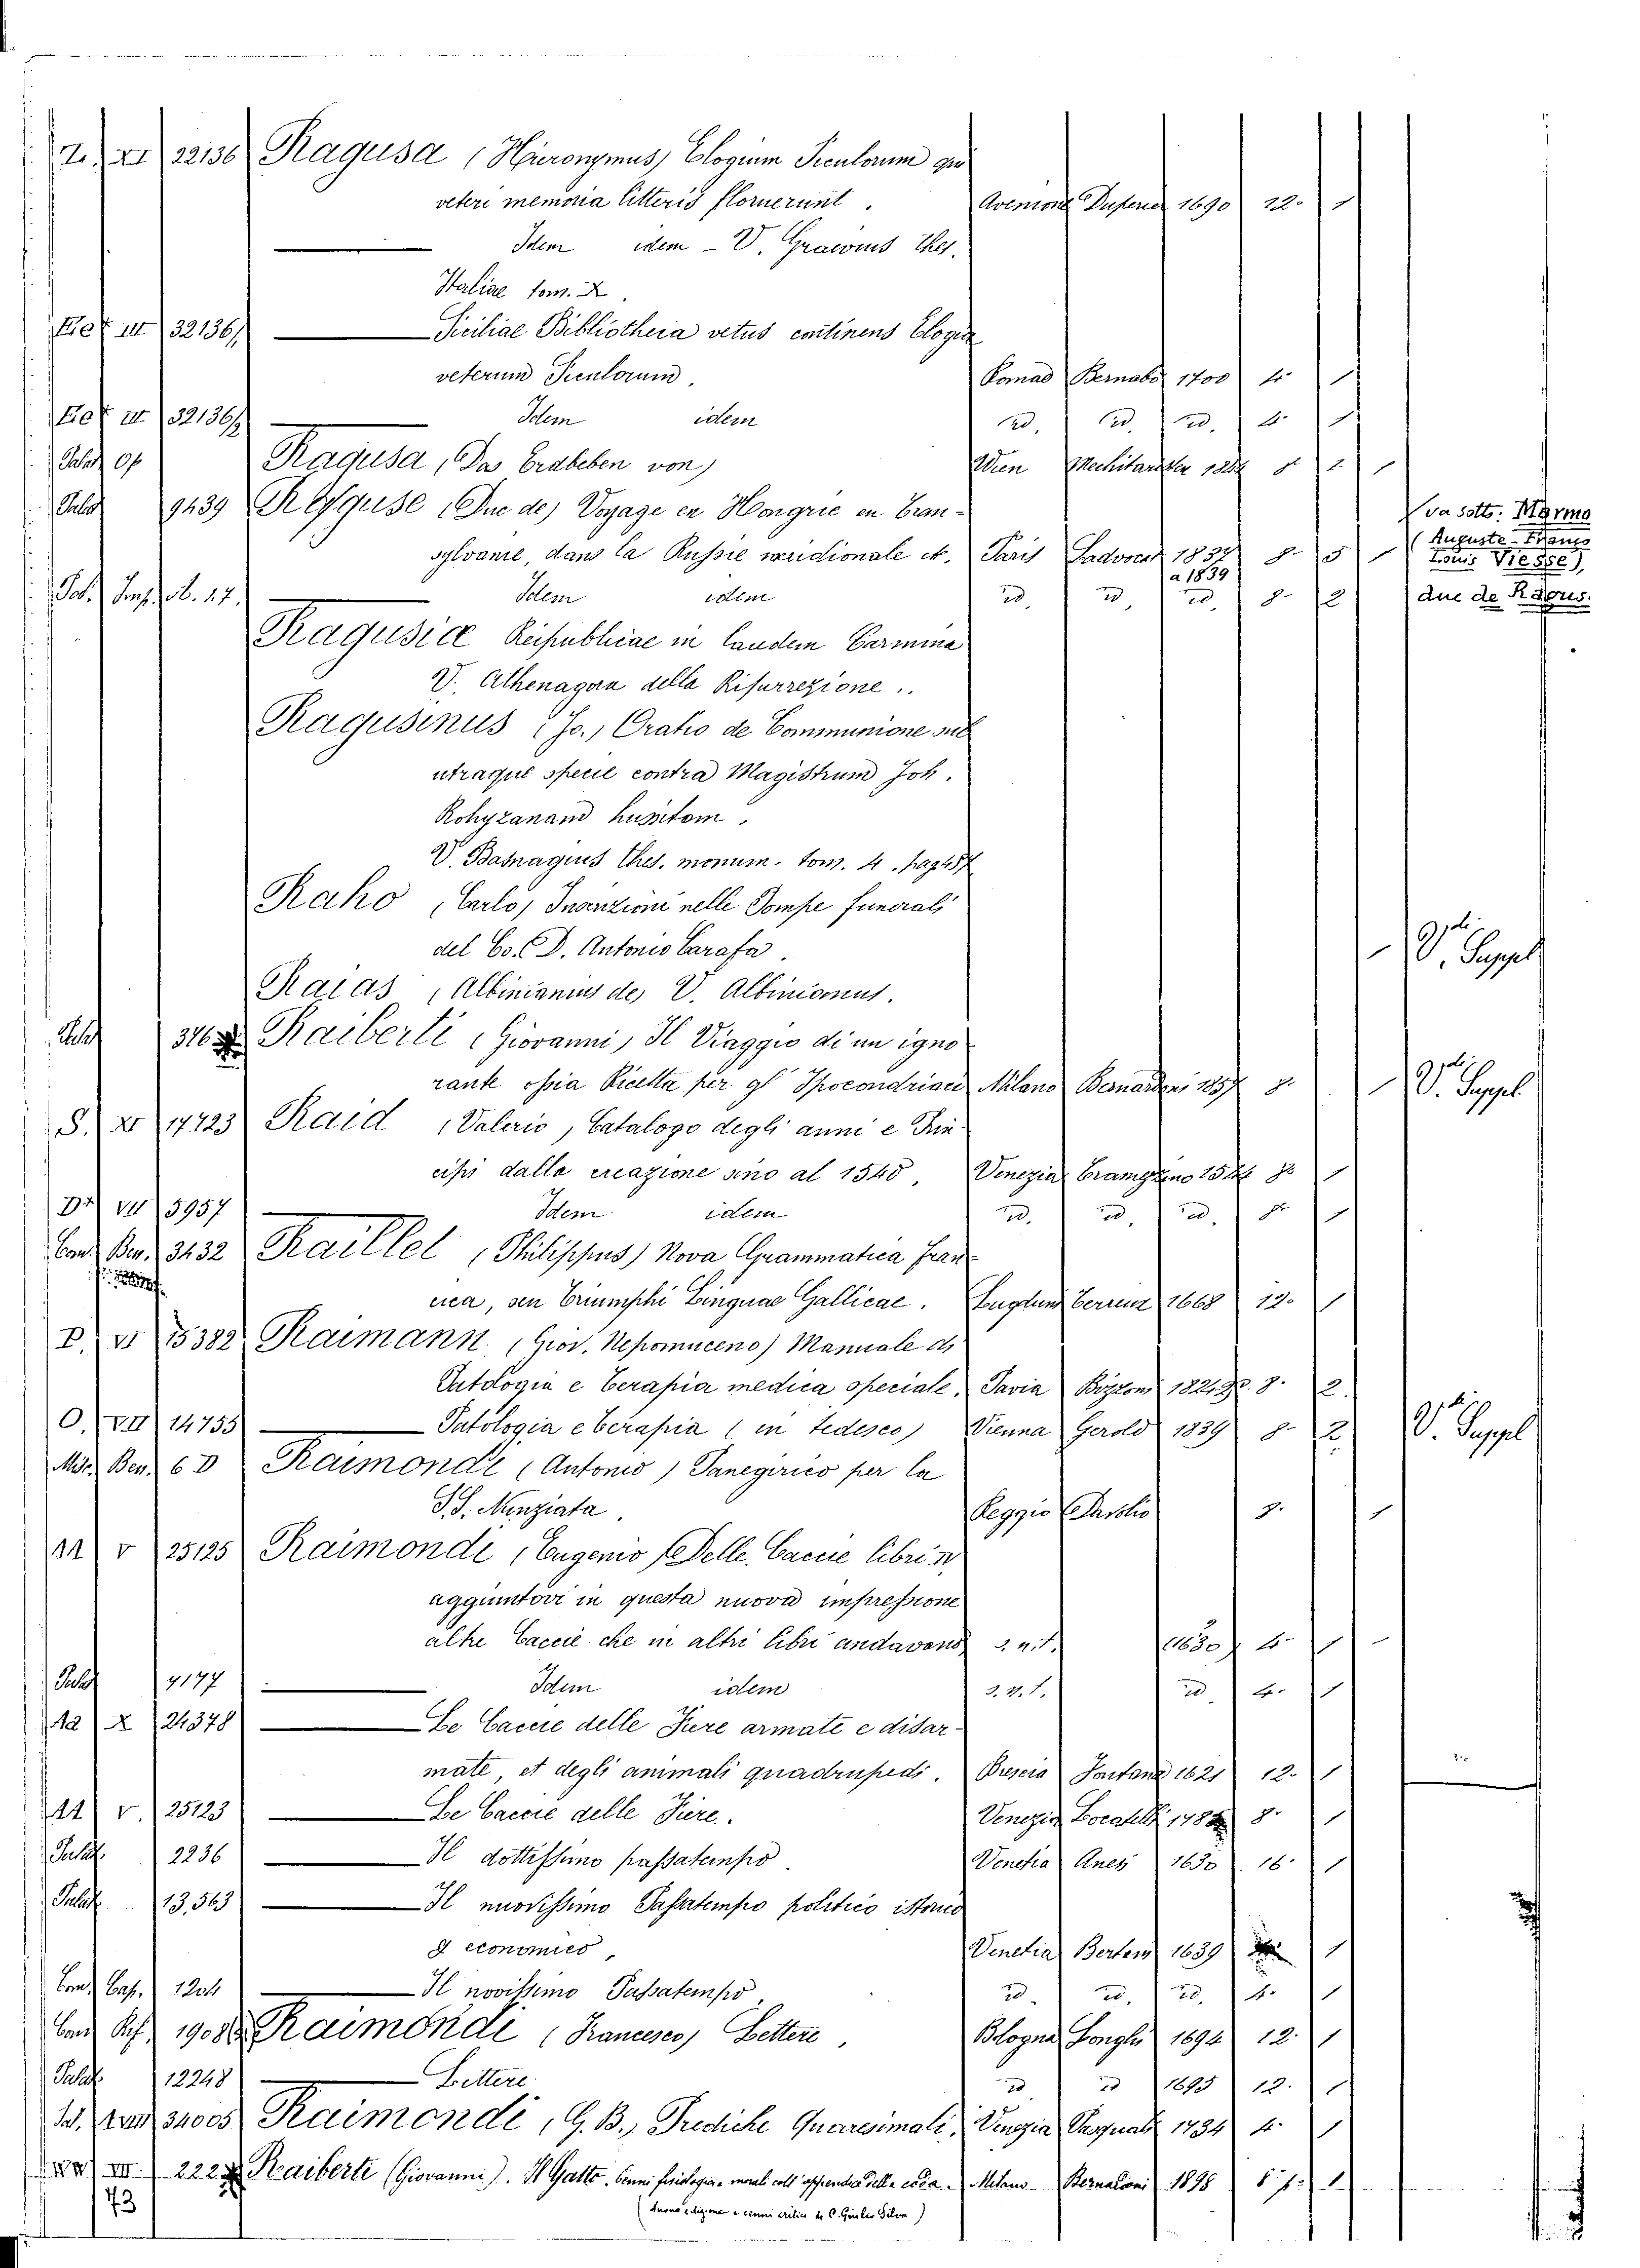 Z. XI 22136 Ragusa (Hieronymus) Elogium Siculorum qui
veteri memoria litteris floruerunt. Avenione Duperier 1690 12. 1
Idem idem - V. Graevius Thes.
Italiae tom. X.
III 32136/1 Siciliae Bibliotheca vetus continens Elogia
veterum Siculorum. Romae Bernabò 1700 4. 1
III 32136/2 Idem idem id. id. id. 4. 1
Ragusa, (Das Erdbeben von) Wien Mechitaristen 8. 1
Palat 9439 Raguse (Duc de) Voyage en Hongrie en Tran-
sylvanie, dans la Russie méridionale et. Paris Ladvocat 1837 8. 5
a 1839
Idem idem id. id. id. 8. 2
va sotto: Marmo
(Auguste-Franç
Louis Viesse),
duc de Ragus.
Ragusiae Reipublicae in laudem Carmina
V. Athenagora della Risurrezione..
Ragusinus (Jo.) Oratio de Communione sub
utraque specie contra Magistrum Joh.
Rohyzanand hussitam.
V. Basnagius Thes. monum. tom. 4.
Raho (Carlo) Inscrizioni nelle Pompe funerali
del Co. D. Antonio Carafa. V. Suppel
Raias (Albinianius de) V. Albinianus.
Palat Raiberti (Giovanni) Il Viaggio di un igno
rante ossia Ricetta per gl' Ipocondriaci Milano Bernardoni 1857 8. V. Suppel
S. XI 17.723 Raid (Valerio) Catalogo degli anni e Prin
cipi dalla creazione sino al 1540. Venezia 8. 1
VII 5957 Idem idem id. id. id. 8. 1
3432 Raillet (Philippus) Nova Grammatica Fran
cica, seu Triumphi Linguae Gallicae. Lugduni 1668 12. 1
P. VI 15382 Raimann (Giov. Nepomuceno) Manuale di
Patologia e Terapia medica speciale. Pavia Bizzoni 8. 2.
O. VII 14755 Patologia e terapia (in tedesco) Vienna Gerold 1839 8. 2 V. Suppel
Mis. Ben. 6 D Raimondi (Antonio) Panegirico per la
S.S. Nunziata. Reggio 8. 1
11 V 25125 Raimondi (Eugenio) Delle Caccie libri IV
aggiuntovi in questa nuova impressione
altre Caccie che in altri libri andavano s. n. t. (1630) 4. 1
Palat 4177 Idem idem s. n. t. id. 4. 1
12 X 24378 Le Caccie delle Fiere armate e disar-
mate, et degli animali quadrupedi. Brescia Fontana 1621 12. 1
11 V. 25123 Le Caccie delle Fiere. Venezia Locatelli 8. 1
Palat. 2236 Il dottissimo passatempo. Venetia 1630 16. 1
Palat 13,563 Il nuovissimo Passatempo politico istorico
& economico. Venetia Bertani 1639 1
Il novissimo Passatempo. id. id. id. 4. 1
1908 Raimondi (Francesco) Lettere, Bologna Longhi 1694 12. 1
Palat. 12248 Lettere id id 1695 12. 1
34005 Raimondi, G. B., Prediche Quaresimali, Venezia Pasquali 1734 4. 1
VII. 222 Raiberti (Giovanni). Il Gatto. Cenni fisiologico-morali coll'appendice della coda. Milano Bernardoni 1898 8 1
(nuova edizione e cenni critici di C. Giulio Silva)
73